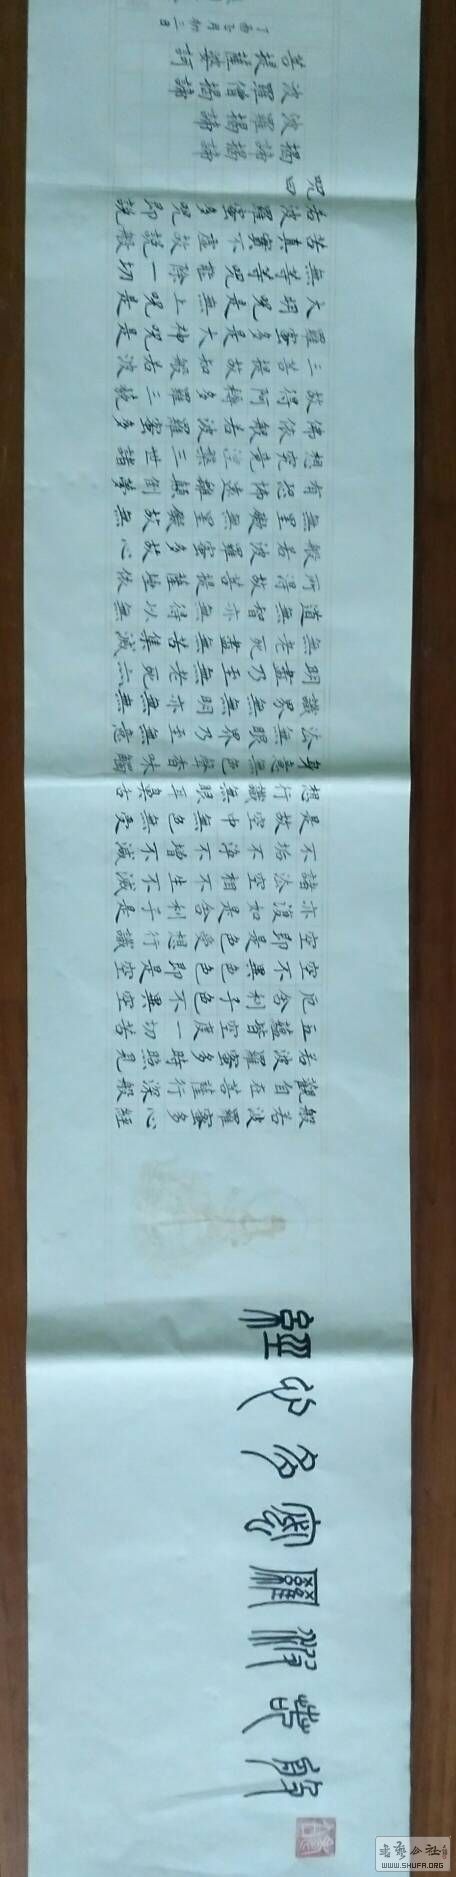 般若波羅蜜多心經
般若波羅蜜多心經
觀自在菩薩行深般
若波羅蜜多時照見
五蘊皆空度一切苦
厄舍利子色不異空
空不異色色即是空
空即是色受想行識
亦復如是舍利子是
諸法空相不生不滅
不垢不淨不增不減
是故空中無色無受
想行識無眼耳鼻舌
身意無色聲香味觸
法無眼界乃至無意
識界無無明亦無無
明盡乃至無老死亦
無老死盡無苦集滅
道無智亦無得以無
所得故菩提薩埵依
般若波羅蜜多故心
無罣礙無罣礙故無
有恐怖遠離顛倒夢
想究竟涅槃三世諸
佛依般若波羅蜜多
故得阿耨多羅三藐
三菩提故知般若波
羅蜜多是大神咒是
大明咒是無上咒是
無等等咒能除一切
苦真實不虛故說般
若波羅蜜多咒即說
咒曰
揭諦揭諦
波羅揭諦
波羅僧揭諦
菩提薩婆訶
丁酉正月初三日
WWW.SHUFA.ORG